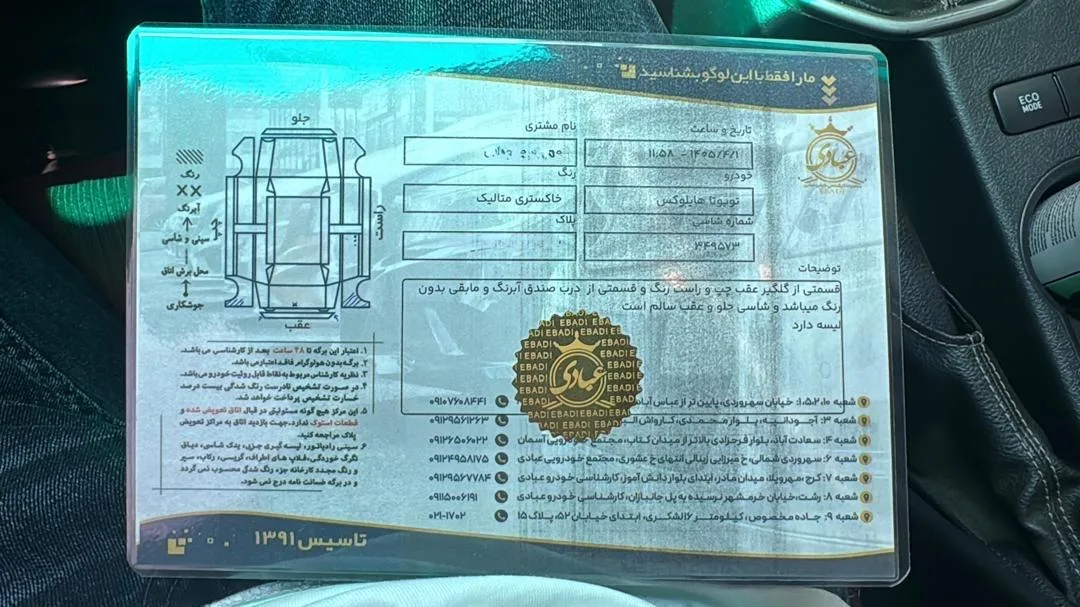 ما را فقط با این لوگو بشناسید
عبادی
EBADI
ECO
MODE
تاریخ و ساعت
۱۴۰۵/۴/۱ - ۱۱:۵۸
نام مشتری
خودرو
تویوتا هایلوکس
رنگ
خاکستری متالیک
شماره شاسی
۴۴۹۵۷۳
پلاک
توضیحات
قسمتی از گلگیر عقب چپ و راست رنگ و قسمتی از درب صندق آبرنگ و مابقی بدون
رنگ میباشد و شاسی جلو و عقب سالم است
لیسه دارد
جلو
راست
چپ
عقب
رنگ
XX
آبرنگ
سینی و شاسی
محل برش اتاق
جوشکاری
۱. اعتبار این برگه تا ۴۸ ساعت بعد از کارشناسی می‌باشد.
۲. برگه بدون هولوگرام فاقد اعتبار می باشد.
۳. نظریه کارشناس مربوط به نقاط قابل رویت خودرو می‌باشد.
۴. در صورت تشخیص نادرست رنگ شدگی بیست درصد
خسارت تشخیص پرداخت خواهد شد.
۵. این مرکز هیچ گونه مسئولیتی در قبال اتاق تعویض شده و
قطعات استوک ندارد. جهت بازدید اتاق به مراکز تعویض
پلاک مراجعه کنید.
۶. سینی رادیاتور، لیسه گیری جزئی، یدک شاسی، دیاق
تگرگ خوردگی، قلاب های اطراف، گریسی، رکاب، سپر
و رنگ مجدد کارخانه جزء رنگ شدگی محسوب نمی گردد
و در برگه ضمانت نامه درج نمی شود.
عبادی
EBADI EBADI EBADI
شعبه ۱،۵،۲،۱۰: خیابان سهروردی، پایین تر از عباس آباد ۰۹۱۰۷۶۰۸۴۴۱
شعبه ۳: آجودانیه، بلوار محمدی، کارواش ۰۹۱۲۹۵۶۱۲۶۳
شعبه ۴: سعادت آباد، بلوار فرحزادی بالاتر از میدان کتاب، مجتمع خودرویی آسمان ۰۹۱۲۶۵۰۶۰۲۲
شعبه ۶: سهروردی شمالی، خ میرزایی زینالی انتهای خ عشوری، مجتمع خودرویی عبادی ۰۹۱۲۴۹۵۸۱۷۵
شعبه ۷: کرج، مهرویلا، میدان مادر، ابتدای بلوار دانش آموز، کارشناسی خودرو عبادی ۰۹۱۲۹۵۶۷۷۸۴
شعبه ۸: رشت، خیابان خرمشهر نرسیده به پل جانبازان، کارشناسی خودرو عبادی ۰۹۱۱۵۰۰۶۱۹۱
شعبه ۹: جاده مخصوص، کیلومتر ۱۶ لشکری، ابتدای خیابان ۵۲، پلاک ۱۵ ۰۲۱-۱۷۰۲
تاسیس ۱۳۹۱